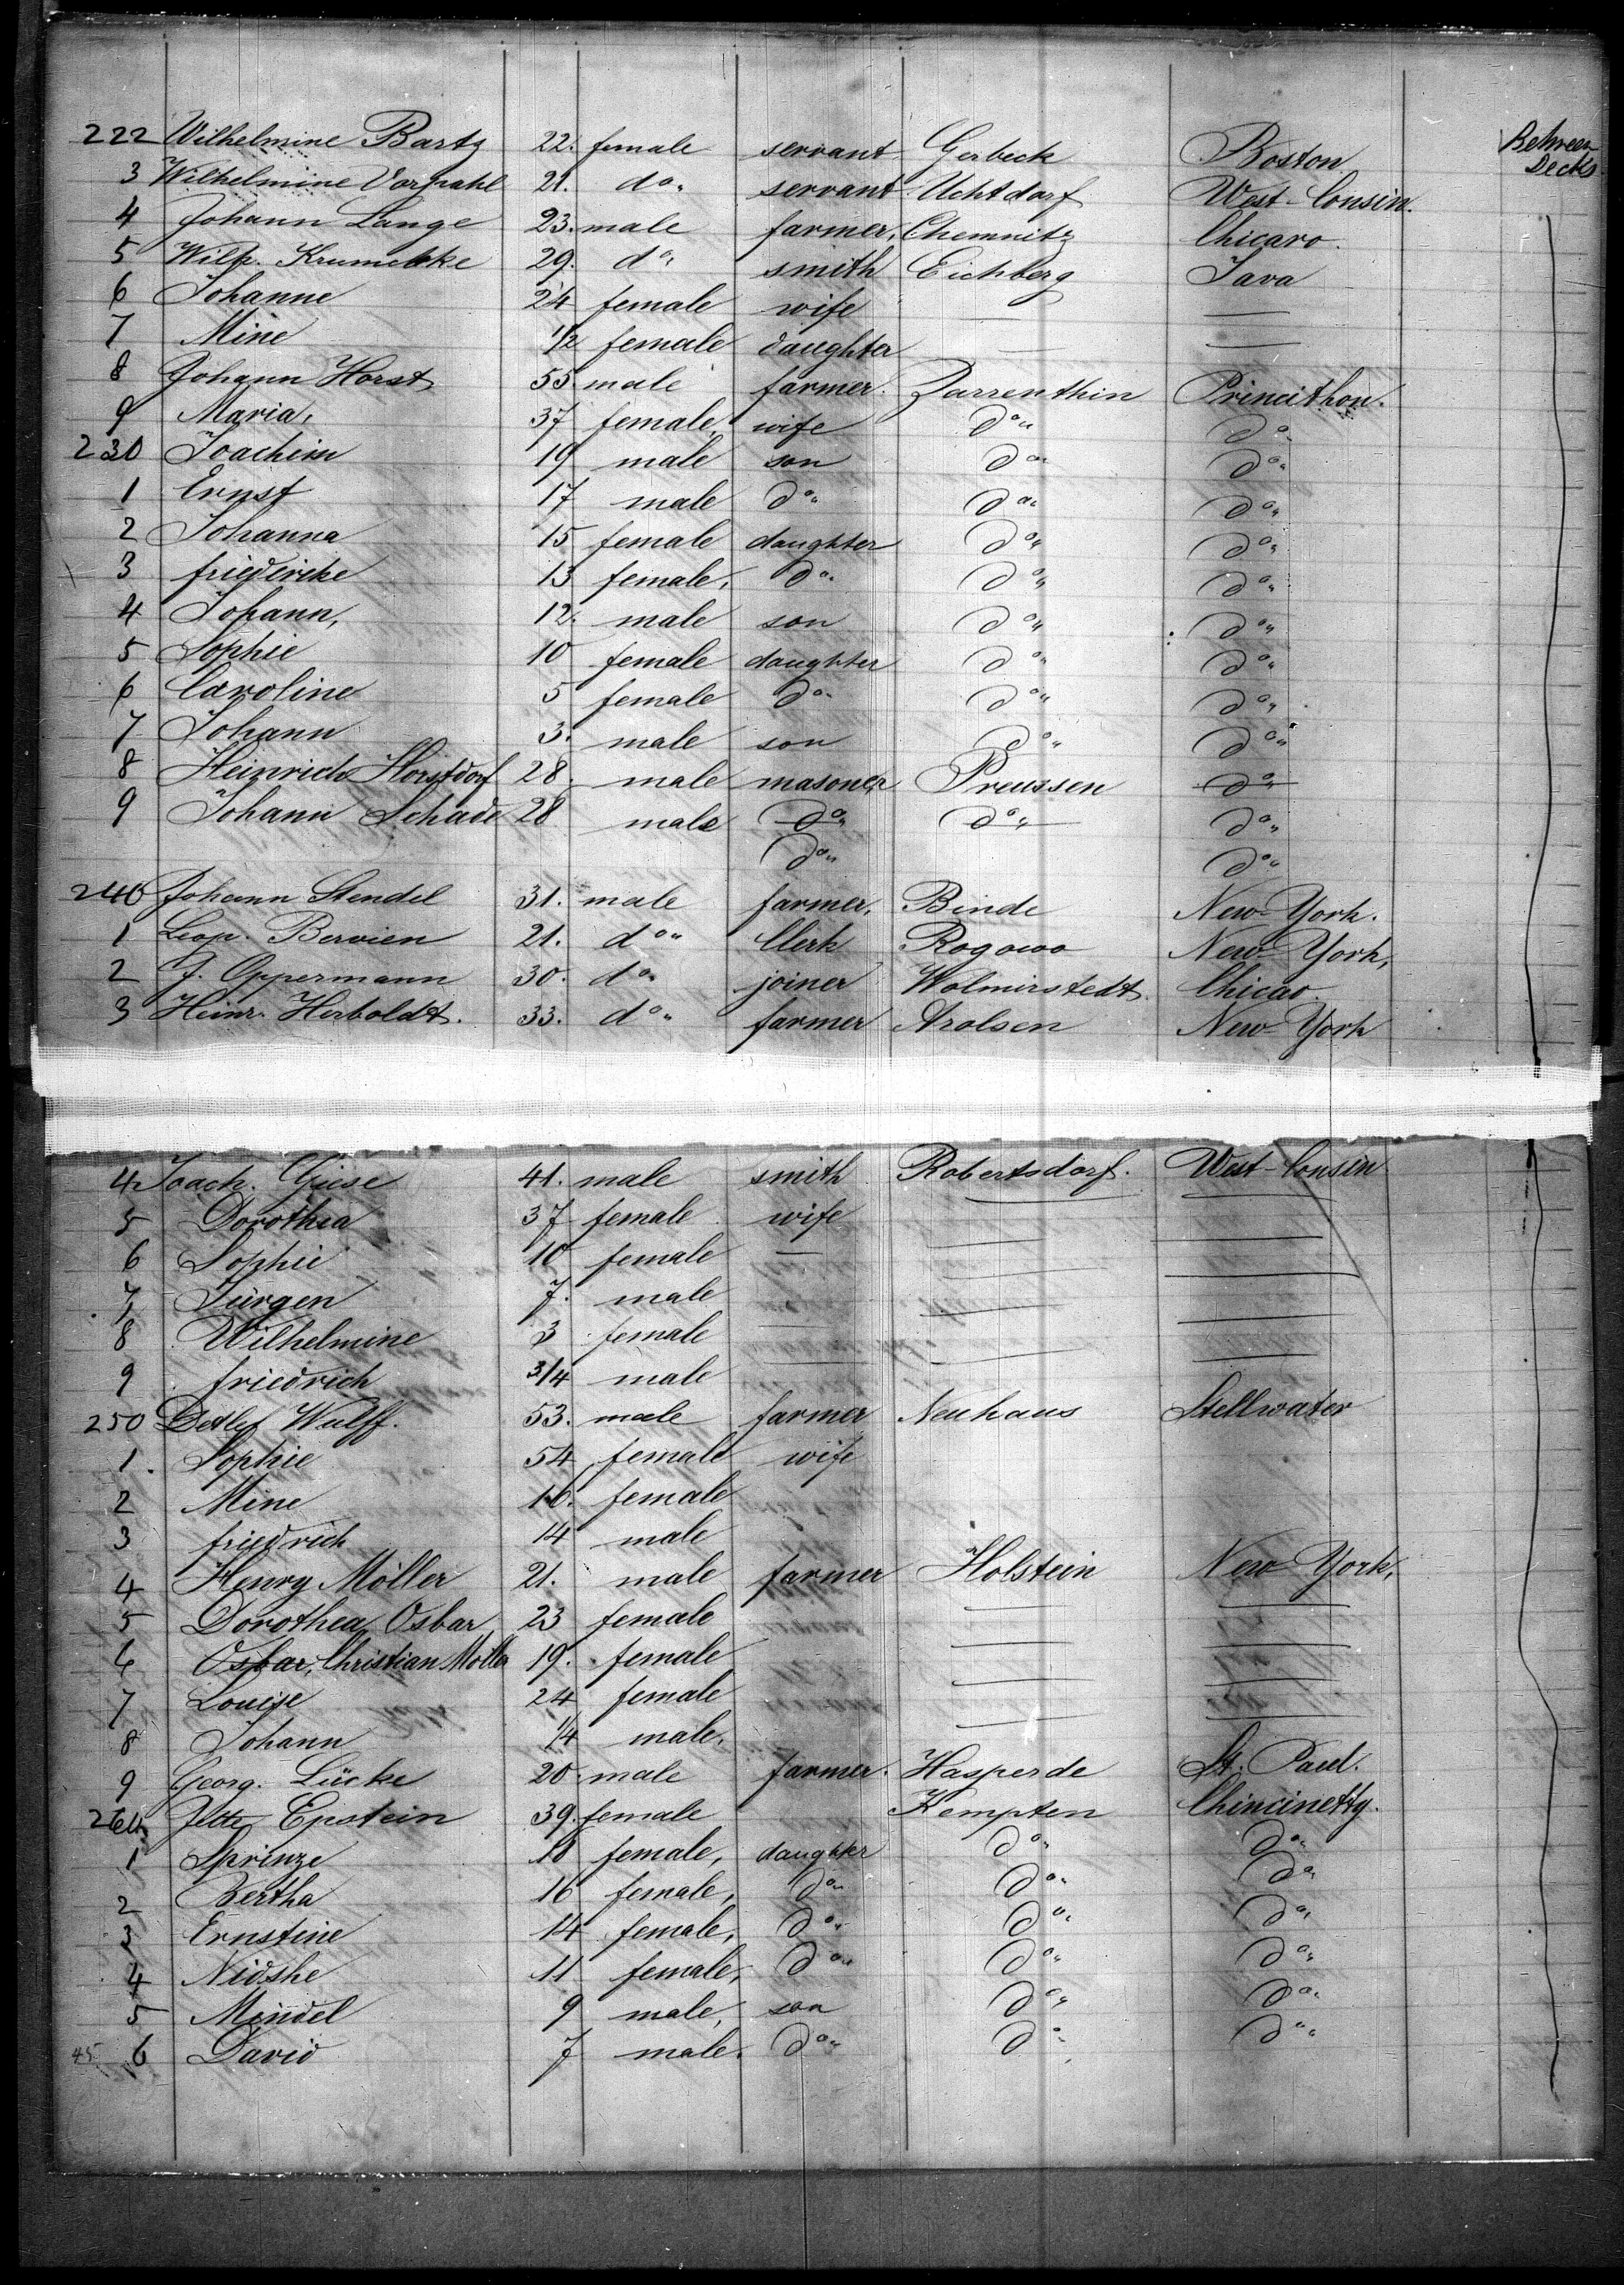 Between Decks
222 Wilhelmine Bartz 22. female servant Gerbeck Boston
3 Wilhelmine Vorpahl 21. do. servant Uchtdorf West-Consin.
4 Johann Lange 23. male farmer, Chemnitz Chicaro.
5 Wilh. 29. do. smith Eichberg Java
6 Johanne 24 female wife — —
7 Mine 1/2 female daughter — —
8 Johann Horst 55 male farmer. Zarrenthin Princithon.
9 Maria, 37 female, wife do. do.
230 Joachim 19 male son do. do.
1 Ernst 17 male do. do. do.
2 Johanna 15 female daughter do. do.
3 friedericke 13 female, do. do. do.
4 Johann, 12. male son do. do.
5 Sophie 10 female daughter do. do.
6 Caroline 5 female do. do. do.
7 Johann 3. male son do. do.
8 Heinrich Horstdorf 28. male masoner Preussen do.
9 Johann Schade 28 male do. do. do.
do. do.
240 Johann Stendel 31. male farmer, Binde New-York.
1 Leop. Bervien 21. do. Clerk Rogowo New-York,
2 F. Oppermann 30. do. joiner Wolmirstedt. Chicao
3 Heinr. Herboldt. 33. do. farmer Arolsen New-York
4 Joach. Giese 41. male smith Robertsdorf. West-Consin
5 Dorothea 37 female wife — —
6 Sophie 10 female — — —
7 Jürgen 7. male — —
8 Wilhelmine 3 female — — —
9 friedrich 3/4 male — — —
250 Detlef Wulff. 53. male farmer Neuhaus Stellwater
1. Sophie 54 female wife
2 Mine 16. female
3 friedrich 14 male
4 Henry Möller 21. male farmer Holstein New-York,
5 Dorothea Osbar 23 female — —
6 Osbar, Christian Möller 19. female — —
7 Louise 24 female — —
8 Johann 1/4 male. — —
9 Georg. Lücke 20 male farmer. Hasperde St. Paul.
260 Jette Epstein 39. female Kempten Chincinetty.
1 Sprinze 18 female, daughter do. do.
2 Bertha 16 female, do. do. do.
3 Ernstine 14 female, do. do. do.
4 Nidshe 11 female, do. do. do.
5 Mindel 9 male, son do. do.
45. 6 David 7 male. do. do. do.